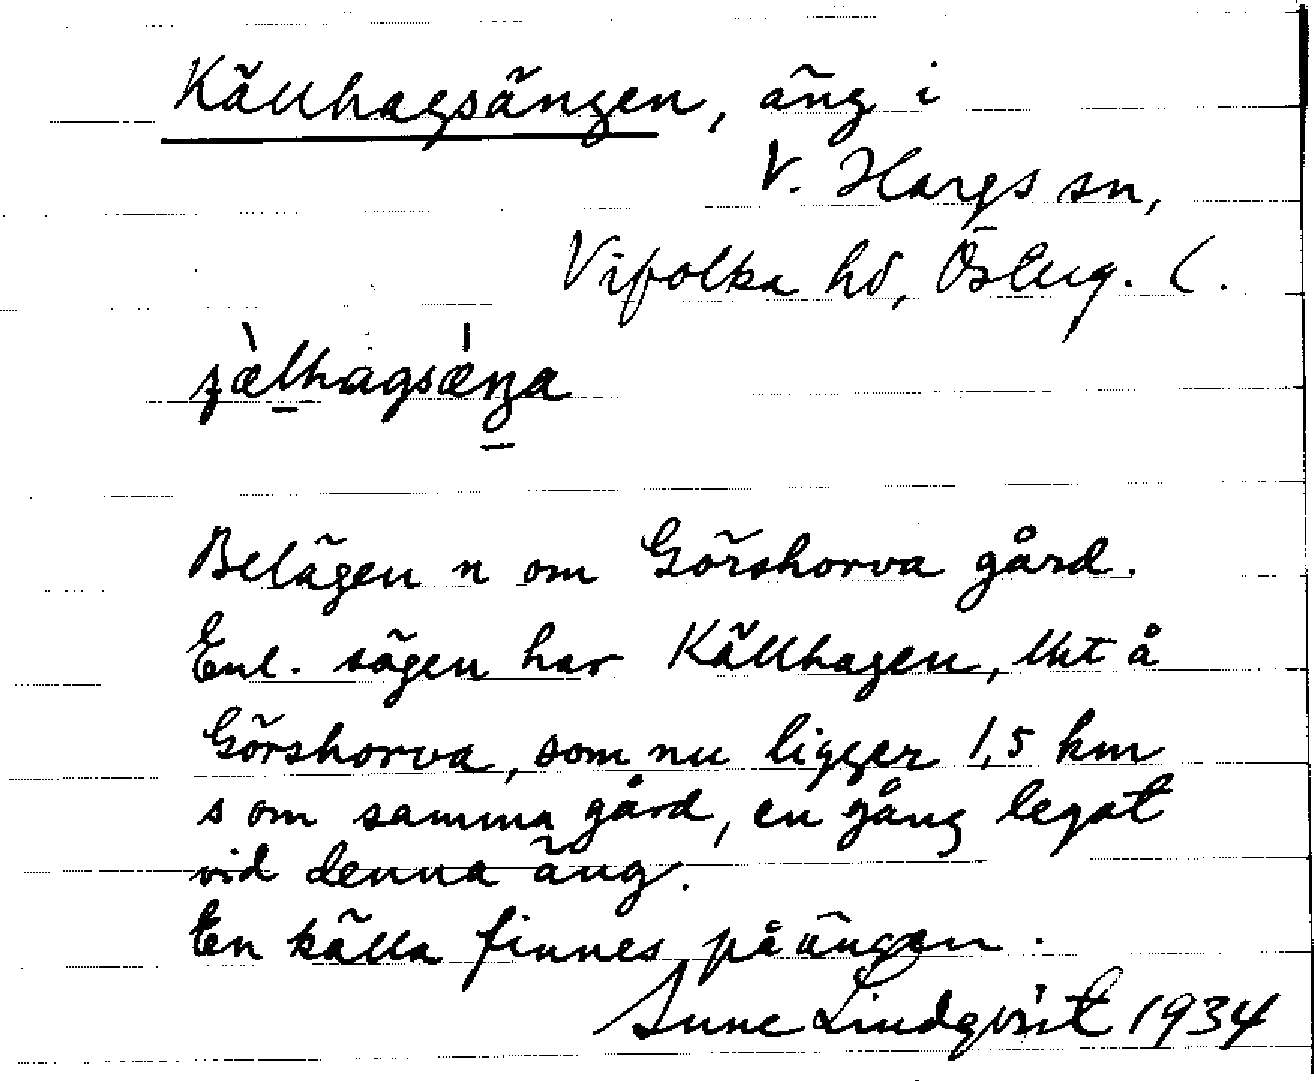 Källhagsängen, äng i
V. Hargs sn,
Vifolka hd, Östug. (.
Belägen n om Görshorva gård.
Enl. sägen har Källhagen, lht å
Görshorva, som nu ligger 1,5 km
s om samma gård, en gång legat
vid denna äng.
En källa finnes på ängen.
Sune Lindqvist 1934